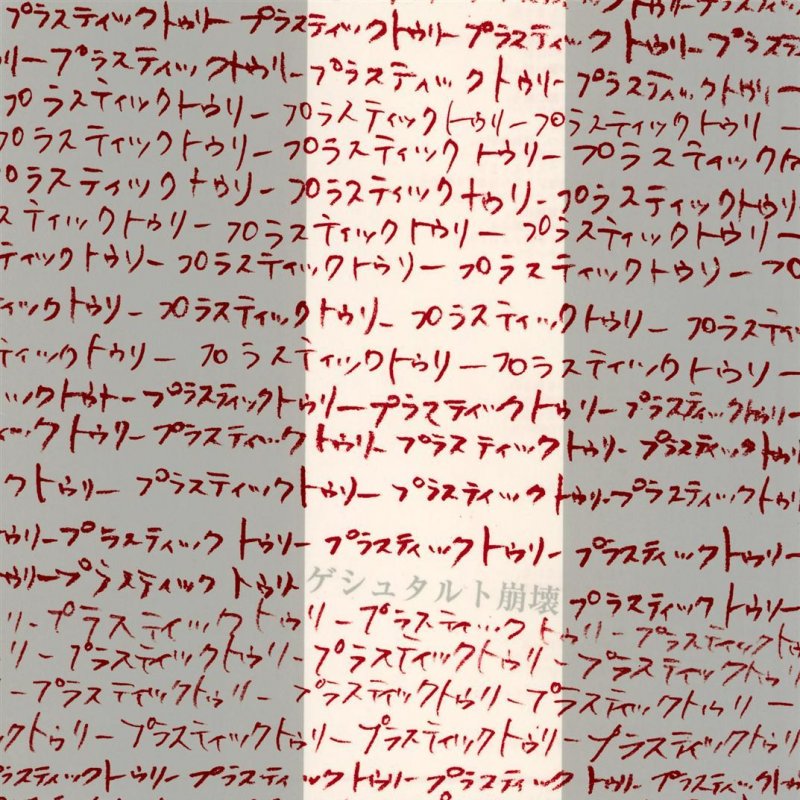 プラスティックトゥリー プラスティックトゥリー プラスティック トゥリー プラステ
リー プラスティックトゥリー プラスティックトゥリー プラスティックトゥリー
プラスティックトゥリー プラスティックトゥリー プラスティックトゥリー
プラスティックトゥリー プラスティック トゥリー プラスティックト
プラスティック トゥリー プラスティック トゥリー プラスティックトゥリ
スティックトゥリー プラスティックトゥリー プラスティックトゥリー
ティックトゥリー プラスティックトゥリー プラスティックトゥリー プ
ティックトゥリー プラスティックトゥリー プラスティックトゥリー プラスティ
ティックトゥリー プラスティックトゥリー プラスティックトゥリー
ックトゥリー プラスティックトゥリー プラスティックトゥリー プラスティックトゥリ
ィック トゥリー プラスティック トゥリー プラスティックトゥリー プラスティックトゥリ
クトゥリー プラスティックトゥリー プラスティックトゥリー プラスティックトゥリ
トゥリー プラスティック トゥリー プラスティック トゥリー プラスティック トゥ
トゥリー プラスティック トゥリー プラスティック トゥリー
ゲシュタルト崩壊
リー プラスティックトゥリー プラスティックトゥリー プラスティックト
リー プラスティックトゥリー プラスティックトゥリー プラスティックトゥリ
ー プラスティックトゥリー プラスティックトゥリー プラスティックトゥリー
クトゥリー プラスティックトゥリー プラスティックトゥリー プラスティックトゥリ
プラスティックトゥリー プラスティックトゥリー プラスティック トゥリー プラスティックト